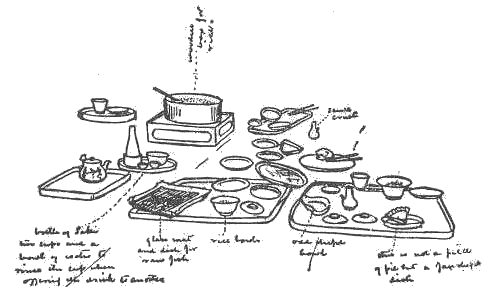 wooden
box for
rice.
sauce
cruet
bottle of Sake
two cups and a
bowl of water to
rinse the cup when
offering the drink to another
glass mat
and dish for
raw fish
rice bowls
odd shaped
bowl
this is not a piece
of pie but a shaped
dish